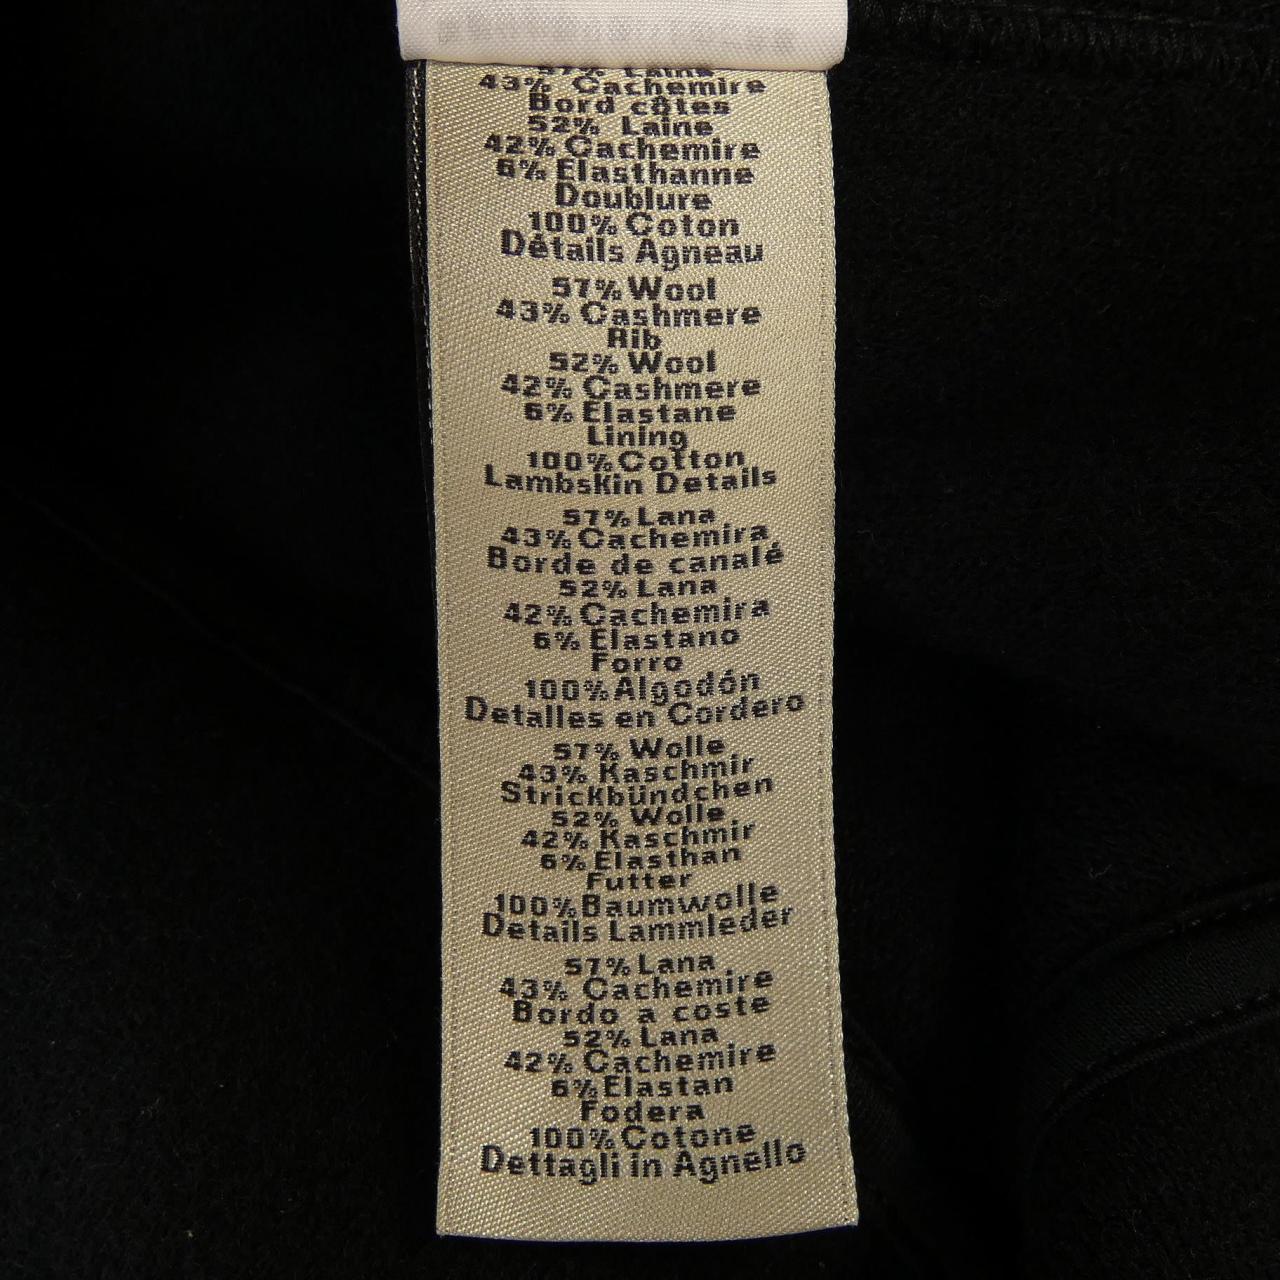 57% Laine
43% Cachemire
Bord côtes
52% Laine
42% Cachemire
6% Élasthanne
Doublure
100% Coton
Détails Agneau
57% Wool
43% Cashmere
Rib
52% Wool
42% Cashmere
6% Elastane
Lining
100% Cotton
Lambskin Details
57% Lana
43% Cachemira
Borde de canalé
52% Lana
42% Cachemira
6% Elastano
Forro
100% Algodón
Detalles en Cordero
57% Wolle
43% Kaschmir
Strickbündchen
52% Wolle
42% Kaschmir
6% Elasthan
Futter
100% Baumwolle
Details Lammleder
57% Lana
43% Cachemire
Bordo a coste
52% Lana
42% Cachemire
6% Elastan
Fodera
100% Cotone
Dettagli in Agnello